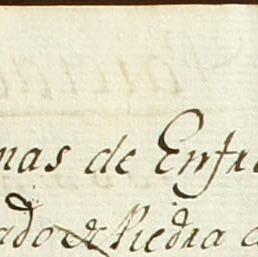 mas de Enfra
ado de Piedra a